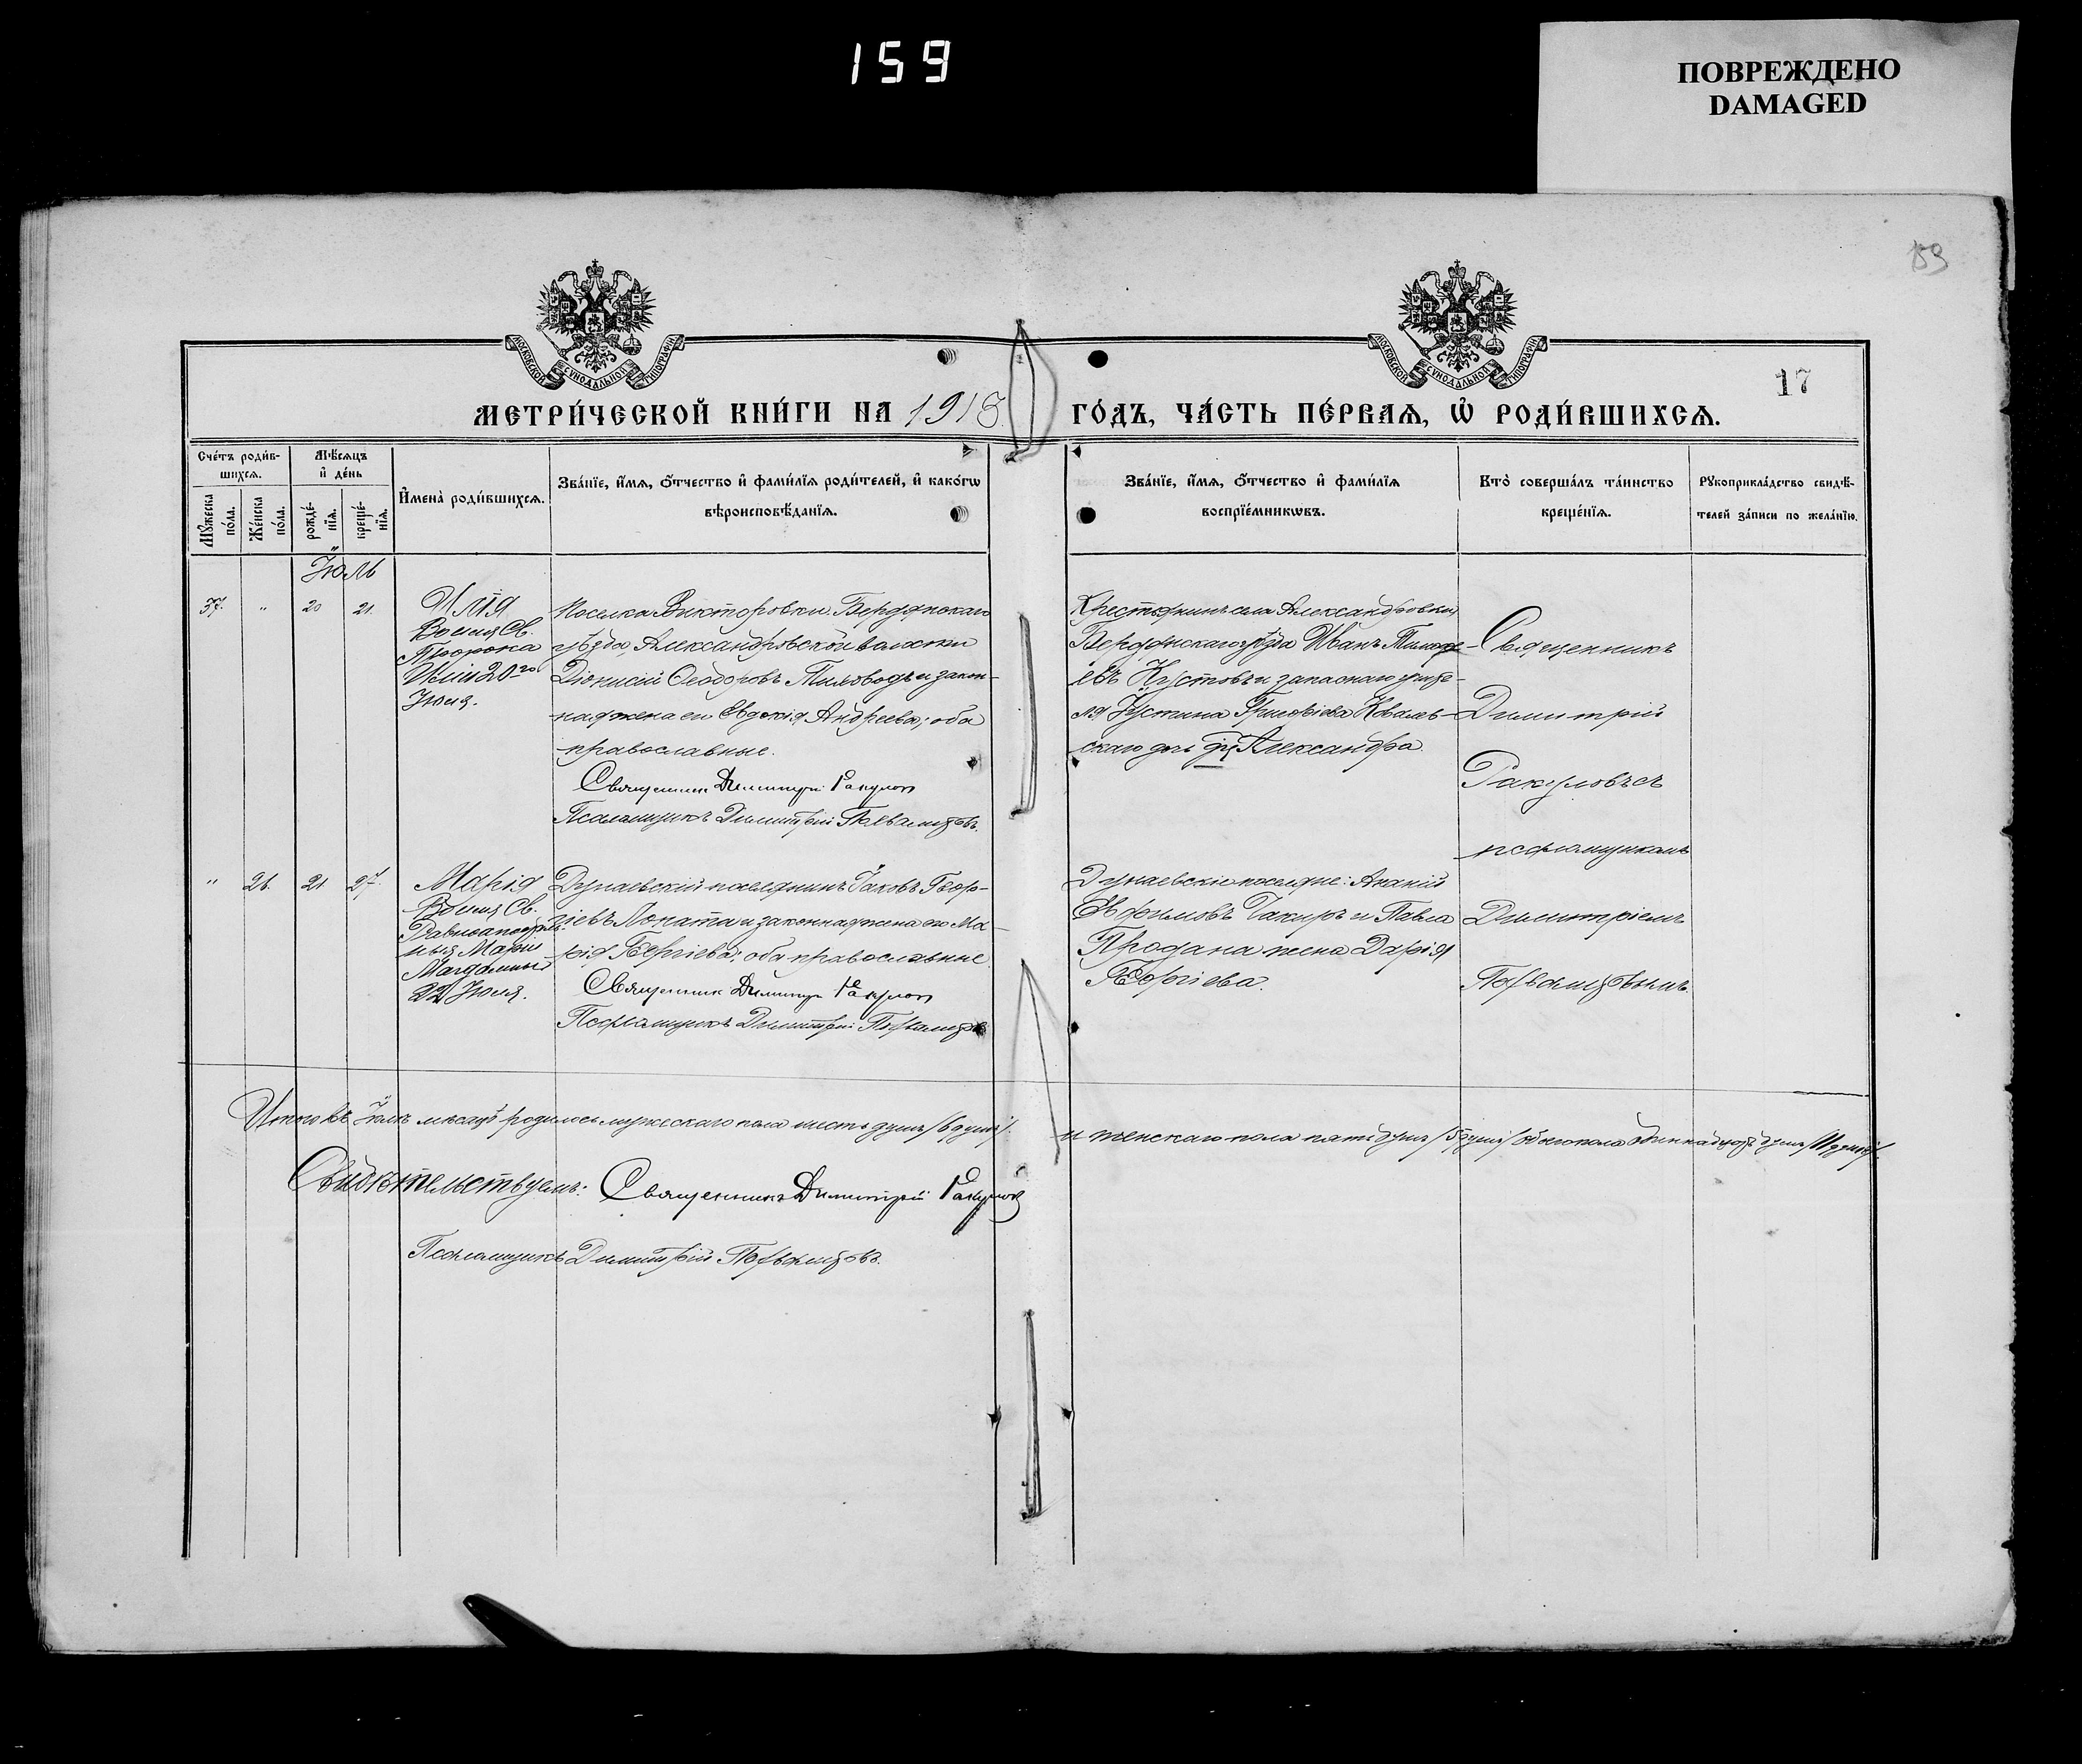 159
ПОВРЕЖДЕНО
DAMAGED
159
МОСКОВСКОЙ СѴНОДАЛЬНОЙ ТИПОГРАФІИ
МОСКОВСКОЙ СѴНОДАЛЬНОЙ ТИПОГРАФІИ
17
МЕТРИ́ЧЕСКОЙ КНИ́ГИ НА 1918
ГО́ДЪ, ЧА́СТЬ ПЕ́РВАѦ, Ѡ҆ РОДИ́ВШИХСѦ.
Сче́тъ роди́в-
шихсѧ.
Мꙋ́жеска
по́ла.
Же́нска
по́ла.
Мѣ́сѧцъ
и҆ де́нь
рожде́-
нїѧ.
креще́-
нїѧ.
И҆мена̀ роди́вшихсѧ.
Зва́нїе, и҆́мѧ, ѻ҆́тчество и҆ фами́лїѧ роди́телей, и҆ како́гѡ
вѣроисповѣ́данїѧ.
Зва́нїе, и҆́мѧ, ѻ҆́тчество и҆ фами́лїѧ
воспрїе́мникѡвъ.
Кто̀ соверша́лъ та́инство
креще́нїѧ.
Рꙋкоприкла́дство свидѣ́-
телей за́писи по жела́нїю.
Іюль
37. " 20 21.
Илія
Во имя Св.
Пророка
Иліи 20-го
Іюля.
Поселка Викторовки Бердянскаго
уѣзда, Александровской волости
Діонисій Ѳеодоровъ Тиховодъ и закон-
ная жена его Евдокія Андреева; оба
православные.
Священникъ Димитрій Ракулов
Псаломщикъ Димитрій
Крестьянинъ села Александровки,
Бердянскаго уѣзда Иванъ
евъ и запаснаго
Іустина Григоріева
скаго дочь дѣв. Александра
Священникъ
Димитрій
Ракуловъ съ
псаломщикомъ
Димитріемъ
" 26. 21 27.
Марія
Во имя Св.
Равноапостоль-
ныя Маріи
Магдалины
22 Іюля.
Дунаевскій поселянинъ Іаковъ Геор-
гіевъ Лопата и законная жена его Ма-
рія Георгіева; оба православные.
Священник Димитрій Ракулов
Псаломщикъ Димитрій
Дунаевскіе поселяне: Ананій
Ефимовъ Чакиръ и Павла
Продана жена Дарія
Георгіева.
Итого въ Іюлѣ мѣсяцѣ родилось мужескаго пола шесть душъ /6 душъ/.
и женскаго пола пять душъ /5 душъ/ обоего пола одиннадцать душъ /11 душъ/.
Свидѣтельствуемъ: Священникъ Димитрій Ракулов
Псаломщикъ Димитрій